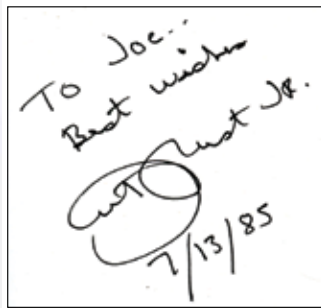 To Joe...
Best wishes
Jr.
7/13/85